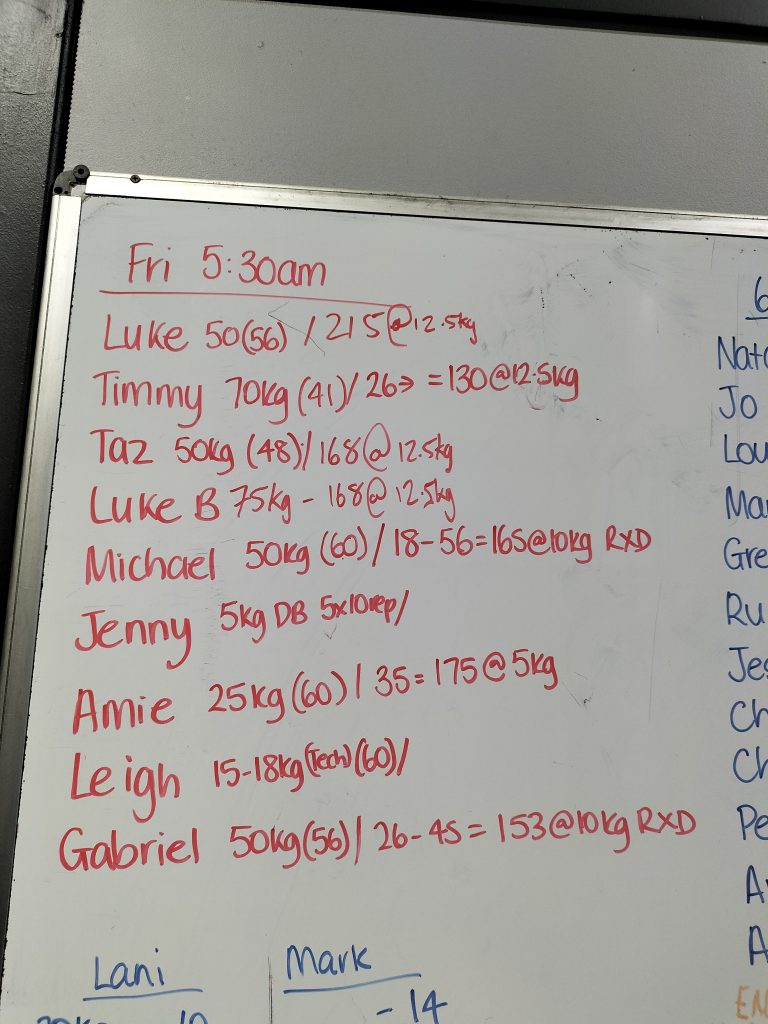 Fri 5:30am
Luke 50(56) / 215@12.5kg
Timmy 70kg (41)/ 26→ = 130@12.5kg
Taz 50kg (48)/ 168@ 12.5kg
Luke B 75kg - 168@ 12.5kg
Michael 50kg (60)/ 18-56=165@10kg RXD
Jenny 5kg DB 5x10rep/
Amie 25kg (60) / 35= 175@5kg
Leigh 15-18kg (Tech) (60)/
Gabriel 50kg(56)/ 26-45= 153@10kg RXD
Lani
Mark
- 14
6
Nata
Jo
Lou
Mar
Gre
Ru
Jes
Ch
Ch
Pe
A
A
EN